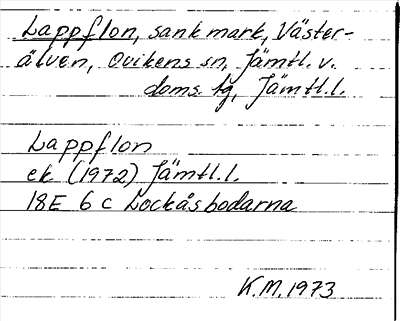 Lappflon, sank mark, Väster-
älven, Ovikens sn, Jämtl. v.
doms. tg, Jämtl. l.
Lappflon
ek (1972) Jämtl. l.
18E 6 c Lockåsbodarna
K.M. 1973